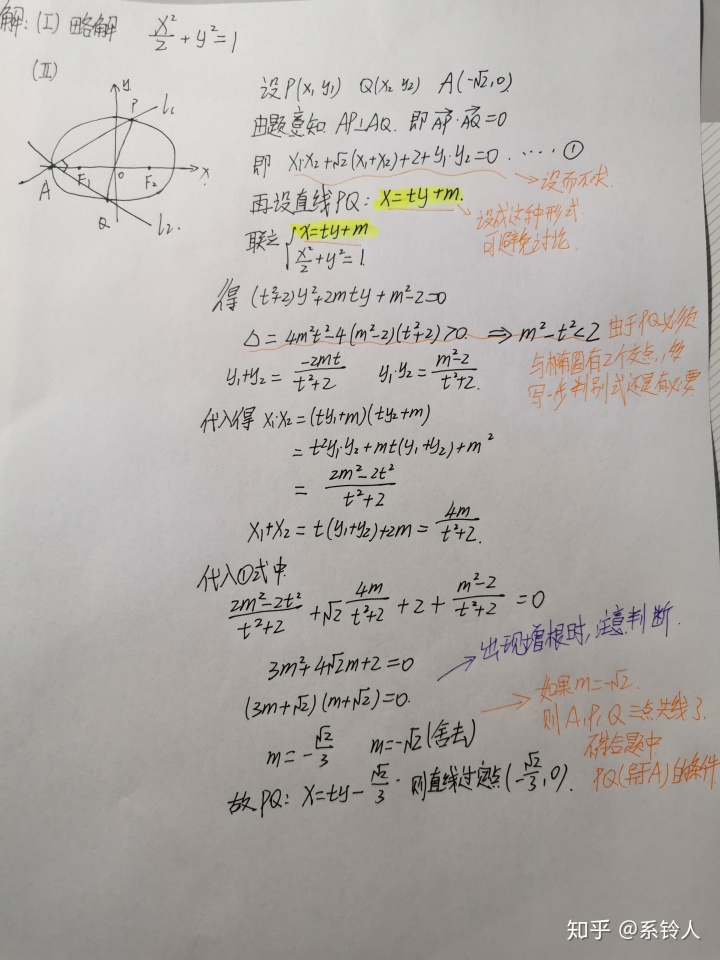 解：(I) 略解 x²/2 + y² = 1
(II)
y
P
l₁
A
F₁
O
F₂
x
Q
l₂
设P(x₁ y₁) Q(x₂ y₂) A(-√2,0)
由题意知 AP⊥AQ. 即 AP·AQ=0
即 x₁·x₂+√2(x₁+x₂)+2+y₁·y₂=0 ····· ①
设而不求
再设直线PQ: x=ty+m.
设成这种形式
可避免讨论
联立 { x=ty+m
x²/2+y²=1.
得 (t²+2)y²+2mty+m²-2=0
Δ= 4m²t²-4(m²-2)(t²+2)>0 ⇒ m²-t²<2
由于PQ必须
与椭圆有2个交点,
写一步判别式还是有必要
y₁+y₂= -2mt/t²+2 y₁·y₂= m²-2/t²+2.
代入得 x₁·x₂=(ty₁+m)(ty₂+m)
= t²y₁·y₂+mt(y₁+y₂)+m²
= 2m²-2t²/t²+2
x₁+x₂= t(y₁+y₂)+2m= 4m/t²+2.
代入①式中
2m²-2t²/t²+2 +√2 4m/t²+2 +2+ m²-2/t²+2 =0
出现增根时,注意判断.
3m²+4√2m+2=0
(3m+√2)(m+√2)=0.
m=-√2/3 m=-√2(舍去)
如果m=-√2.
则A,P,Q三点共线了
不符合题中
PQ(异于A)的条件
故PQ: x=ty-√2/3. 则直线过定点(-√2/3,0).
知乎 @系铃人